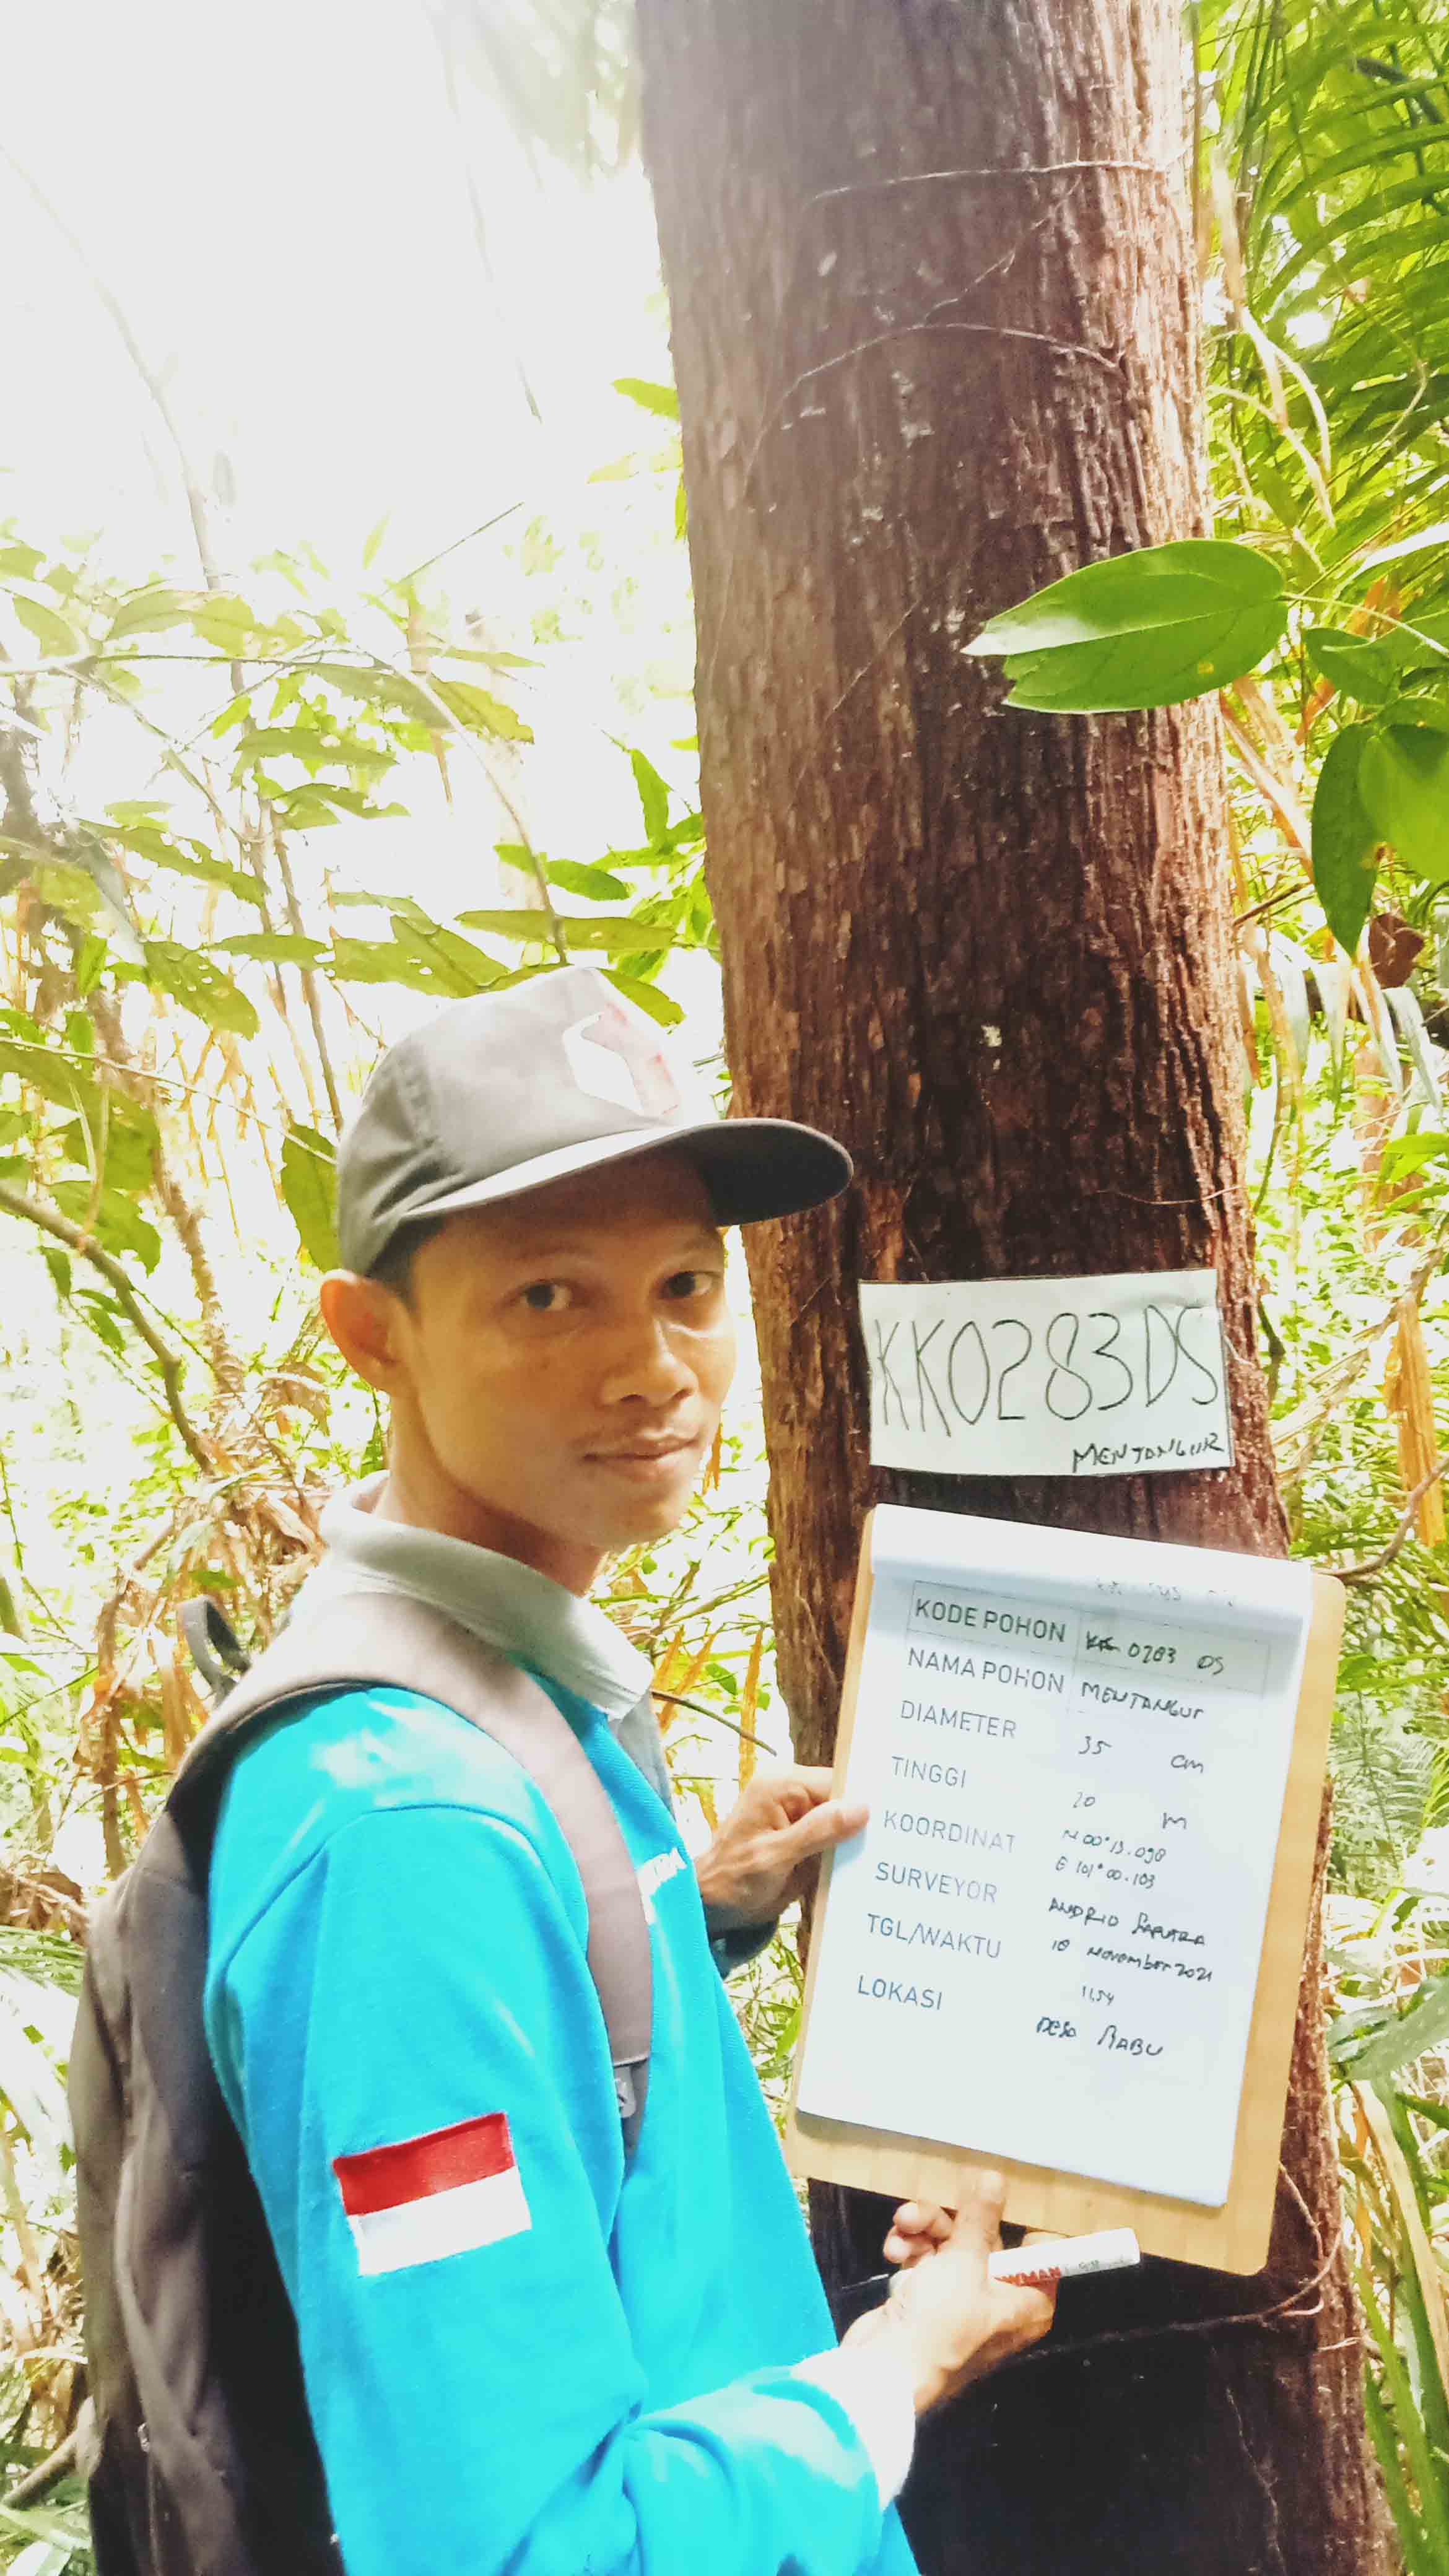 KK0283DS
MENTANGUR
KODE POHON KK 0283 DS
NAMA POHON MENTANGUR
DIAMETER 35 cm
TINGGI 20 m
KOORDINAT N 00° 13.098
E 101° 00.103
SURVEYOR ANDRIO SAPUTRA
TGL/WAKTU 18 November 2021
11.54
LOKASI DESA RABU